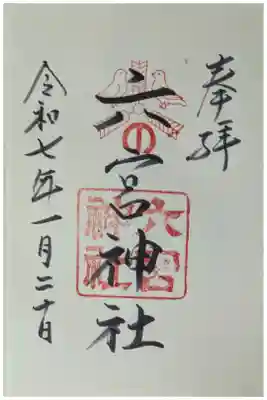 奉拝
六の宮神社
六宮
神社
令和七年一月二十日